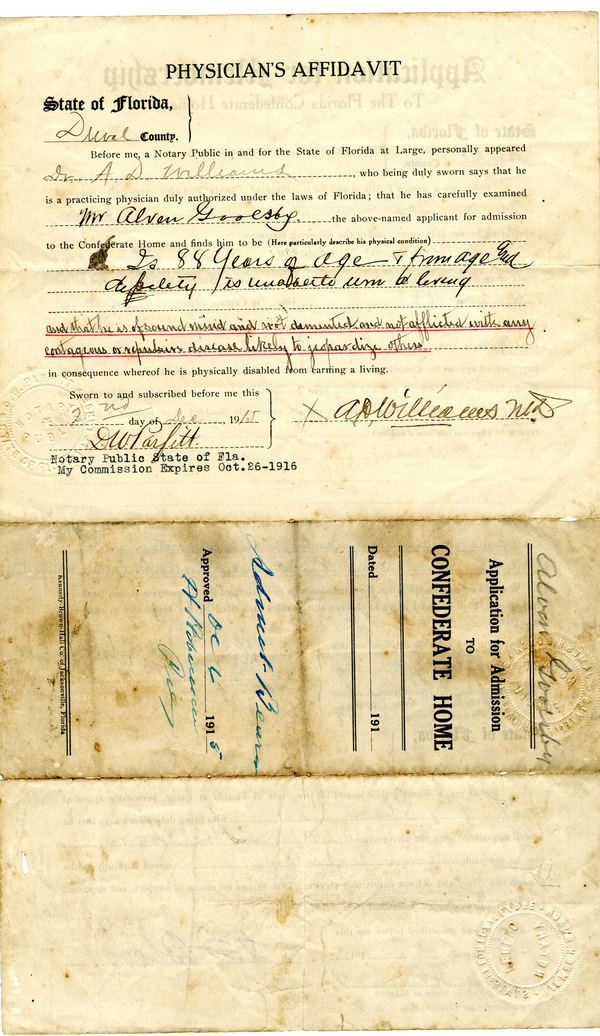 PHYSICIAN'S AFFIDAVIT
State of Florida,
Duval County.
Before me, a Notary Public in and for the State of Florida at Large, personally appeared
Dr A D Williams, who being duly sworn says that he
is a practicing physician duly authorized under the laws of Florida; that he has carefully examined
Mr Alven Goolsby. the above-named applicant for admission
to the Confederate Home and finds him to be (Here particularly describe his physical condition)
Is 88 Years of age & from age and
debility is unable to earn a living
and that he is of sound mind and not demented, and not afflicted with any
contageous or repulsive disease likely to jeopardize others.
in consequence whereof he is physically disabled from earning a living.
Sworn to and subscribed before me this
2nd day of Dec, 1915
X A.D. Williams M.D.
D W Parfitt.
Notary Public State of Fla.
My Commission Expires Oct.26-1916
Alven Goolsby
Application for Admission
TO
CONFEDERATE HOME
Dated 191
Admit
Approved 6 1915
Kennedy-Brown-Hall Co. of Jacksonville, Florida